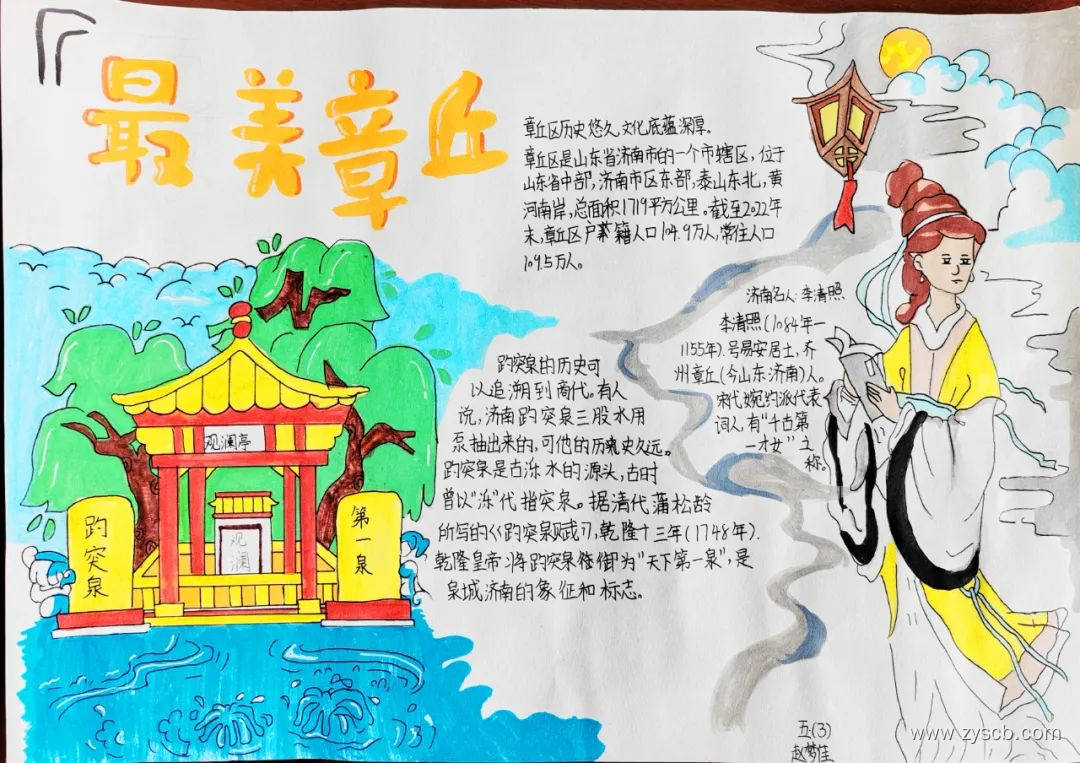 最美章丘
章丘区历史悠久,文化底蕴深厚.
章丘区是山东省济南市的一个市辖区,位于
山东省中部,济南市区东部,泰山东北,黄
河南岸,总面积1719平方公里。截至2022年
末,章丘区户籍人口104.9万人,常住人口
109.5万人。
济南名人:李清照
李清照(1084年一
1155年).号易安居士,齐
州章丘(今山东济南)人。
宋代婉约派代表
词人,有"千古第
一才女"之
称。
趵突泉的历史可
以追溯到商代。有人
说,济南趵突泉三股水用
泵抽出来的,可他的历史久远。
趵突泉是古泺水的源头,古时
曾以"泺"代指突泉。据清代蒲松龄
所写的《趵突泉赋》,乾隆十三年(1748年).
乾隆皇帝将趵突泉御为"天下第一泉",是
泉城济南的象征和标志。
观澜亭
观
澜
趵突泉
第一泉
五(3)
赵梦佳
www.zyscb.com